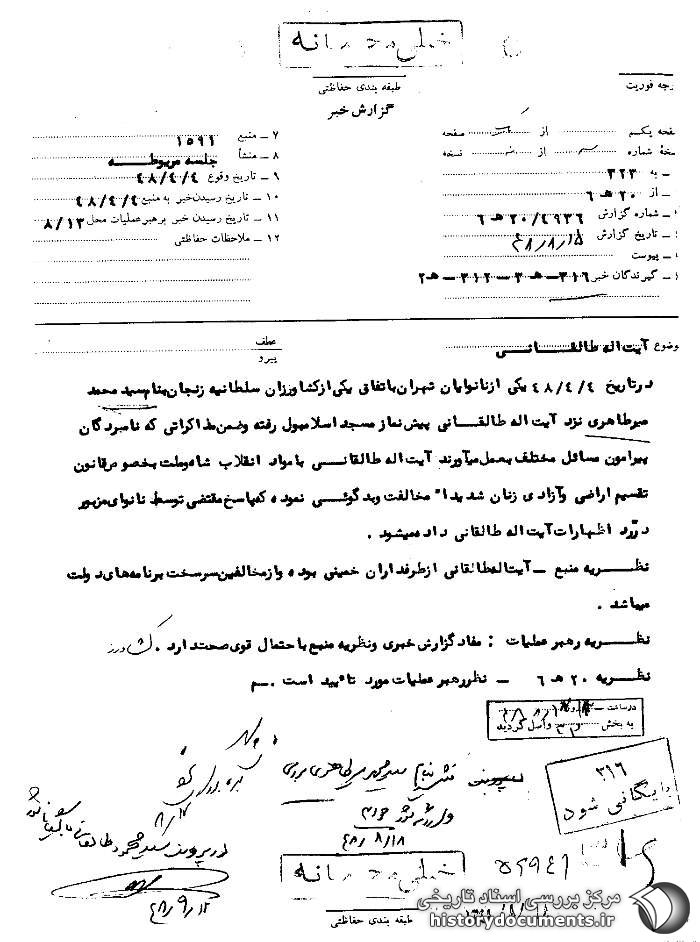 خیلی محرمانه
طبقه بندی حفاظتی
گزارش خبر
رجه فوریت
صفحه یکم از صفحه
نسخهٔ شماره از نسخه
ـ به ۳۲۳
ـ از ۲۰ هـ ۶
ـ شماره گزارش ۲۰/۴۹۳۶ هـ ۶
ـ تاریخ گزارش ۴۸/۸/۱۵
ـ پیوست
ـ گیرندگان خبر ۳۱۶ـ هـ ۳ ـ ۳۱۲ ـ هـ ۲
۷ ـ منبع ۱۵۹۱
۸ ـ منشأ جلسه مربوطه
۹ ـ تاریخ وقوع ۴۸/۴/۴
۱۰ ـ تاریخ رسیدن خبر به منبع ۴۸/۴/۴
۱۱ ـ تاریخ رسیدن خبر برهبر عملیات محل ۸/۱۳
۱۲ ـ ملاحظات حفاظتی
وضوع آیت اله طالقانی
عطف
پیرو
درتاریخ ۴۸/۴/۴ یکی ازنانوایان شهران باتفاق یکی ازکشاورزان سلطانیه زنجان بنام سید محمد
میرطاهری نزد آیت اله طالقانی پیش نماز مسجد اسلامبول رفته وضمن مذاکراتی که نامبردگان
پیرامون مسائل مختلف بعمل میآورند آیت اله طالقانی بامواد انقلاب شاه وملت بخصوص قانون
تقسیم اراضی وآزادی زنان شدیدا" مخالفت وبدگوئی نموده که پاسخ مقتضی توسط نانوای مزبور
در رد اظهارات آیت اله طالقانی داده میشود .
نظریه منبع ـ آیت اله طالقانی ازطرفداران خمینی بوده وازمخالفین سرسخت برنامه های دولت
میباشد .
نظریه رهبر عملیات : مفاد گزارش خبری ونظریه منبع باحتمال قوی صحت دارد . کشاورز
نظریه ۲۰ هـ ۶ ـ نظر رهبر عملیات مورد تائید است . ـ م
در ساعت
به بخش ۳۱۶ واصل گردید
سید محمد میرطاهری
۴۸/۸/۱۸
۸/۱۲
در پرونده سید محمود طالقانی بایگانی شود
۴۸/۹/۱۲
۳۱۶
بایگانی شود
خیلی محرمانه
طبقه بندی حفاظتی
مرکز بررسی اسناد تاریخی
historydocuments.ir